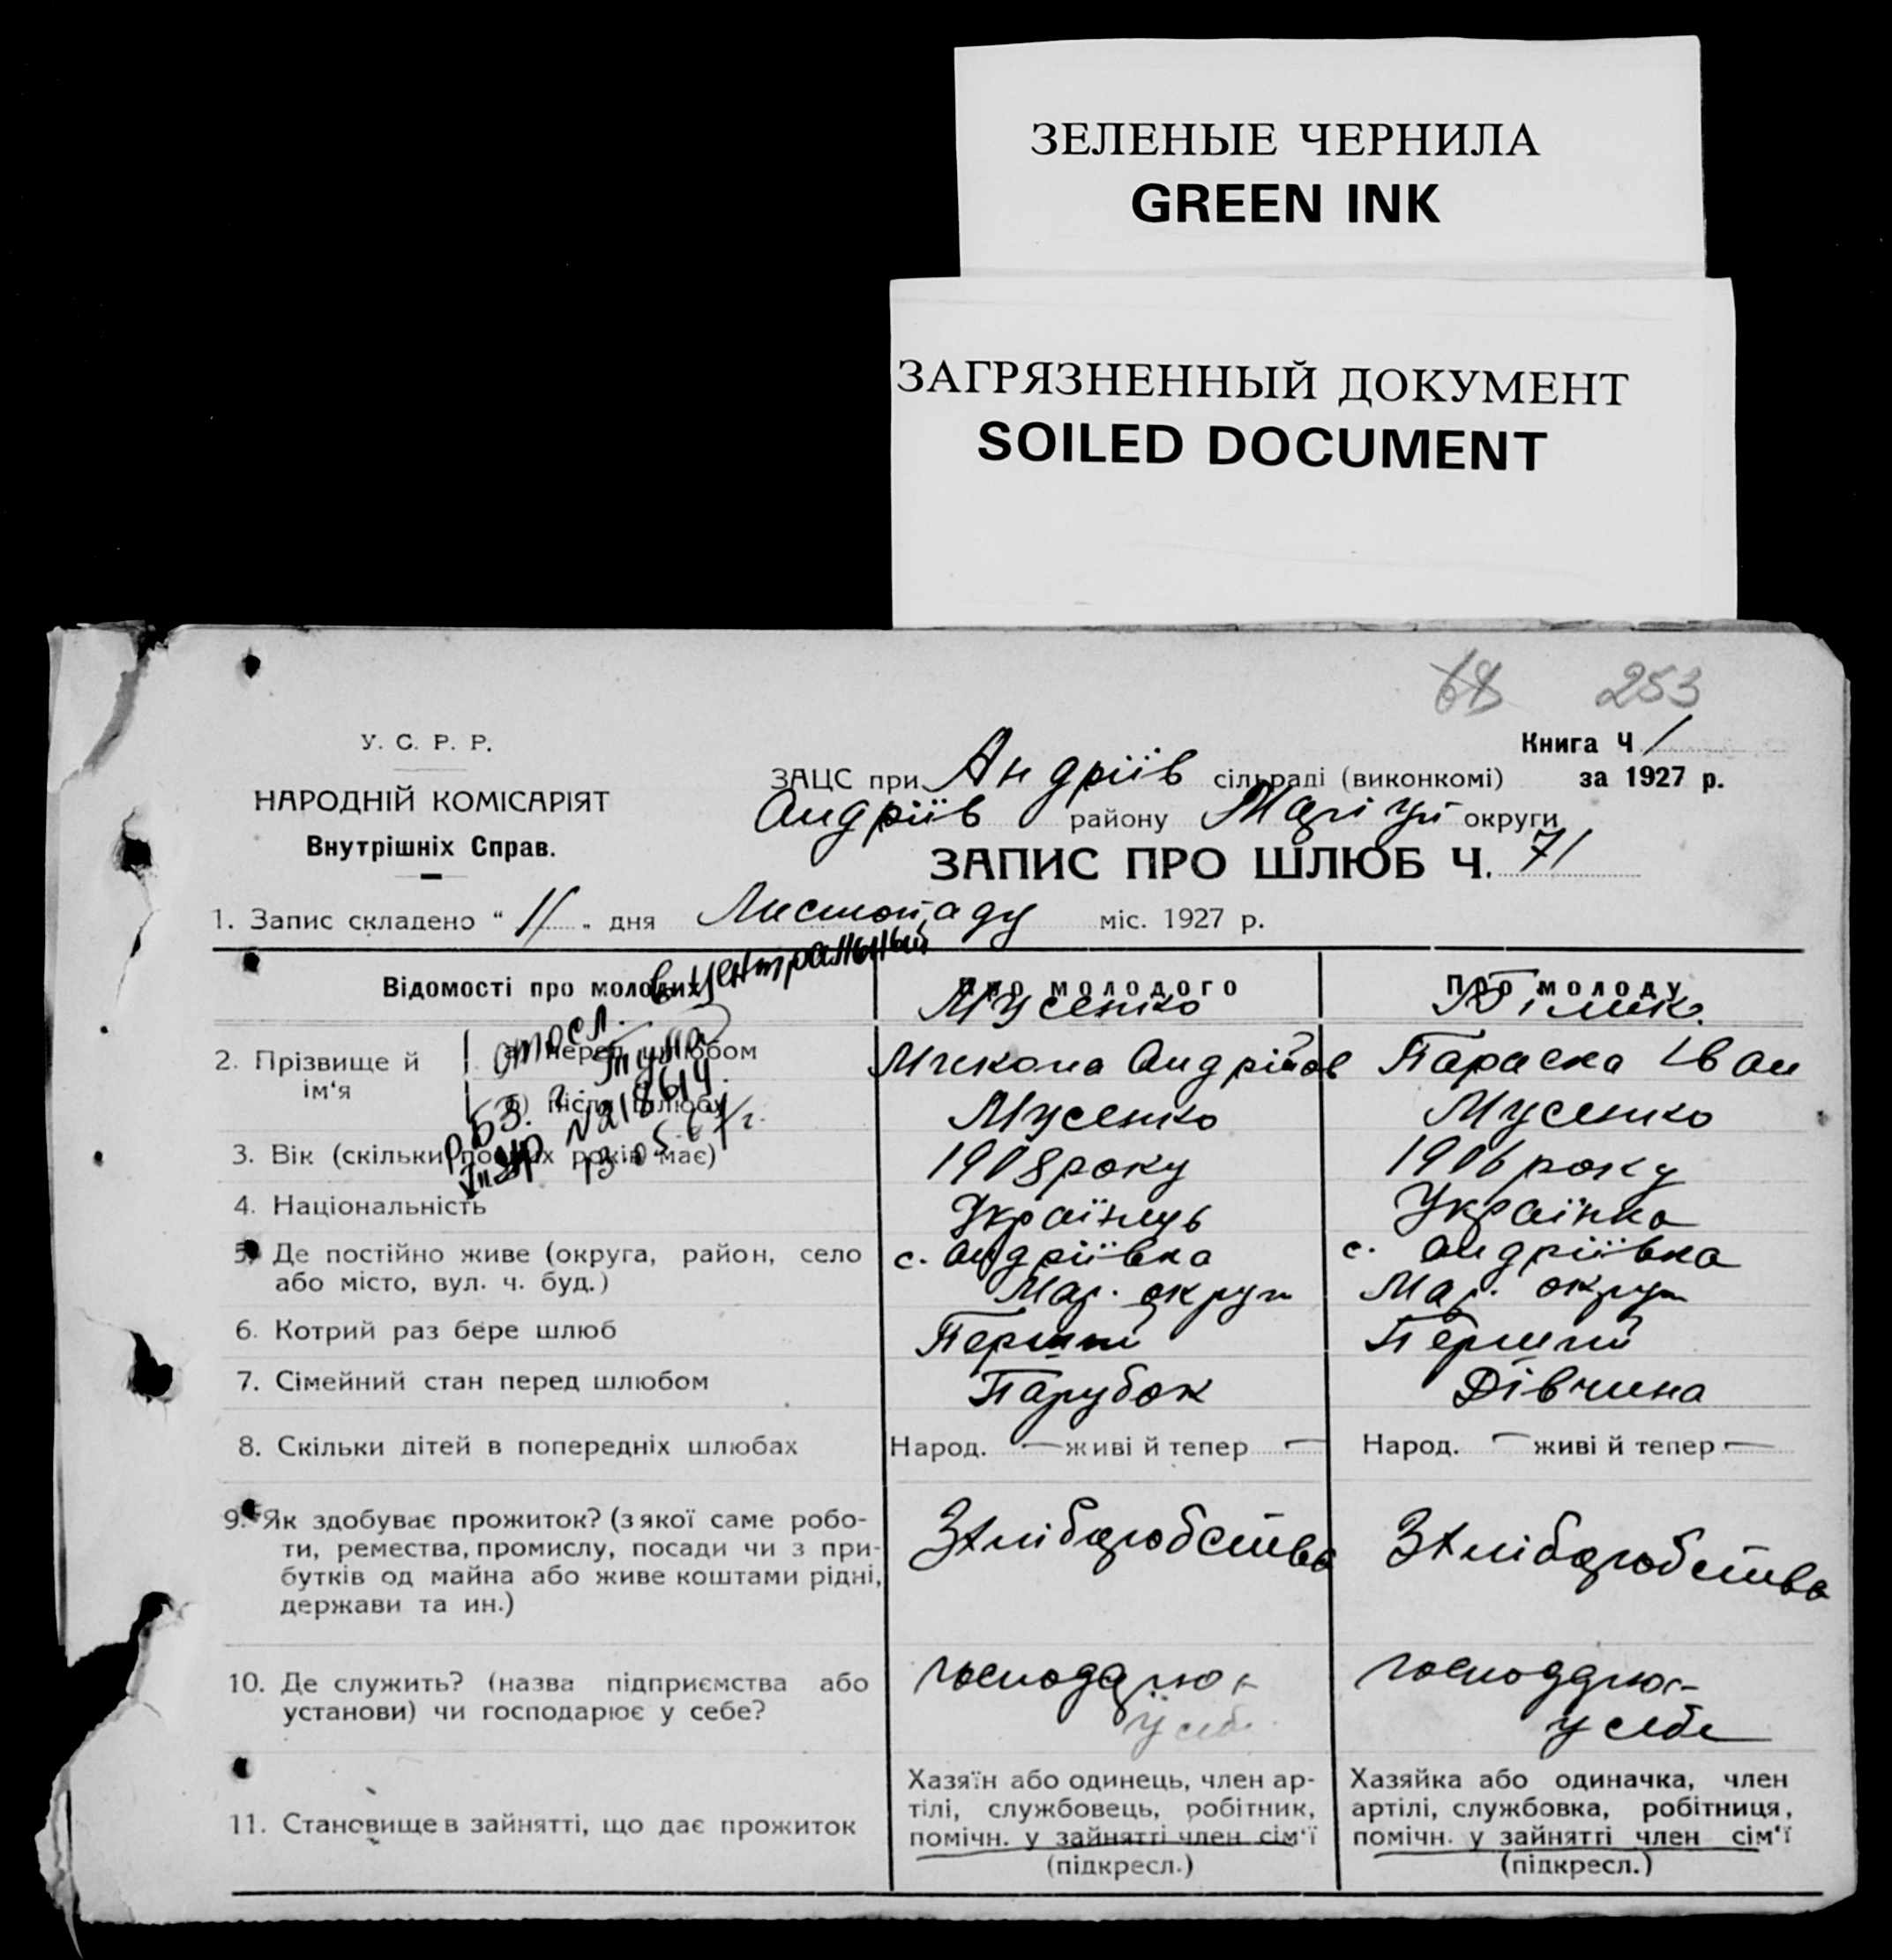 ЗЕЛЕНЫЕ ЧЕРНИЛА
GREEN INK
ЗАГРЯЗНЕННЫЙ ДОКУМЕНТ
SOILED DOCUMENT
68 253
У. С. Р. Р.
НАРОДНІЙ КОМІСАРІЯТ
Внутрішніх Справ.
Книга Ч 1
за 1927 р.
ЗАЦС при Андріїв сільраді (виконкомі)
Андріїв району Маріуп округи
ЗАПИС ПРО ШЛЮБ Ч. 71
1. Запис складено "11" дня Листопаду міс. 1927 р.
Відомості про молодих
Про молодого
Про молоду
в центральный
отосл.
№218614
13.05.67г.
2. Прізвище й ім‘я
а) перед шлюбом
Мусенко
Микола Андріїов
Параска Іван
б) після шлюбу
Мусенко
Мусенко
3. Вік (скільки повних років має)
1908 року
1906 року
4. Національність
Українць
Українка
5. Де постійно живе (округа, район, село
або місто, вул. ч. буд.)
с. Андріївка
Мар. округи
с. Андріївка
Мар. округи
6. Котрий раз бере шлюб
Перший
Перший
7. Сімейний стан перед шлюбом
Парубок
Дівчина
8. Скільки дітей в попередніх шлюбах
Народ. — живі й тепер —
Народ. — живі й тепер —
9. Як здобуває прожиток? (з якої саме робо-
ти, ремества, промислу, посади чи з при-
бутків од майна або живе коштами рідні,
держави та ин.)
З хліборобства
З хліборобства
10. Де служить? (назва підприємства або
установи) чи господарює у себе?
господарює
у себе
господарює
у себе
11. Становище в зайнятті, що дає прожиток
Хазяїн або одинець, член ар-
тілі, службовець, робітник,
помічн. у зайнятті член сім‘ї
(підкресл.)
Хазяйка або одиначка, член
артілі, службовка, робітниця,
помічн. у зайнятті член сім‘ї
(підкресл.)